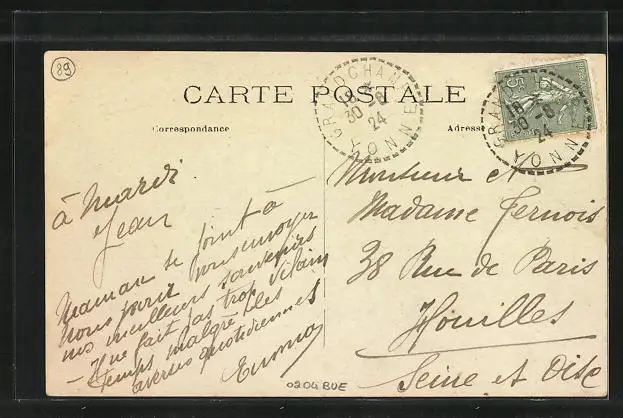 89
CARTE POSTALE
Correspondance
Adresse
GRANDCHAMP
18
30 -8
24
YONNE
à mardi
Jean
Maman se joint à
nous pour vous envoyer
nos meilleurs souvenirs
- Il ne fait pas trop vilain
temps malgré les
averses quotidiennes
Monsieur et
Madame Fernois
38 Rue de Paris
Houilles
Seine et Oise
0204 BUE